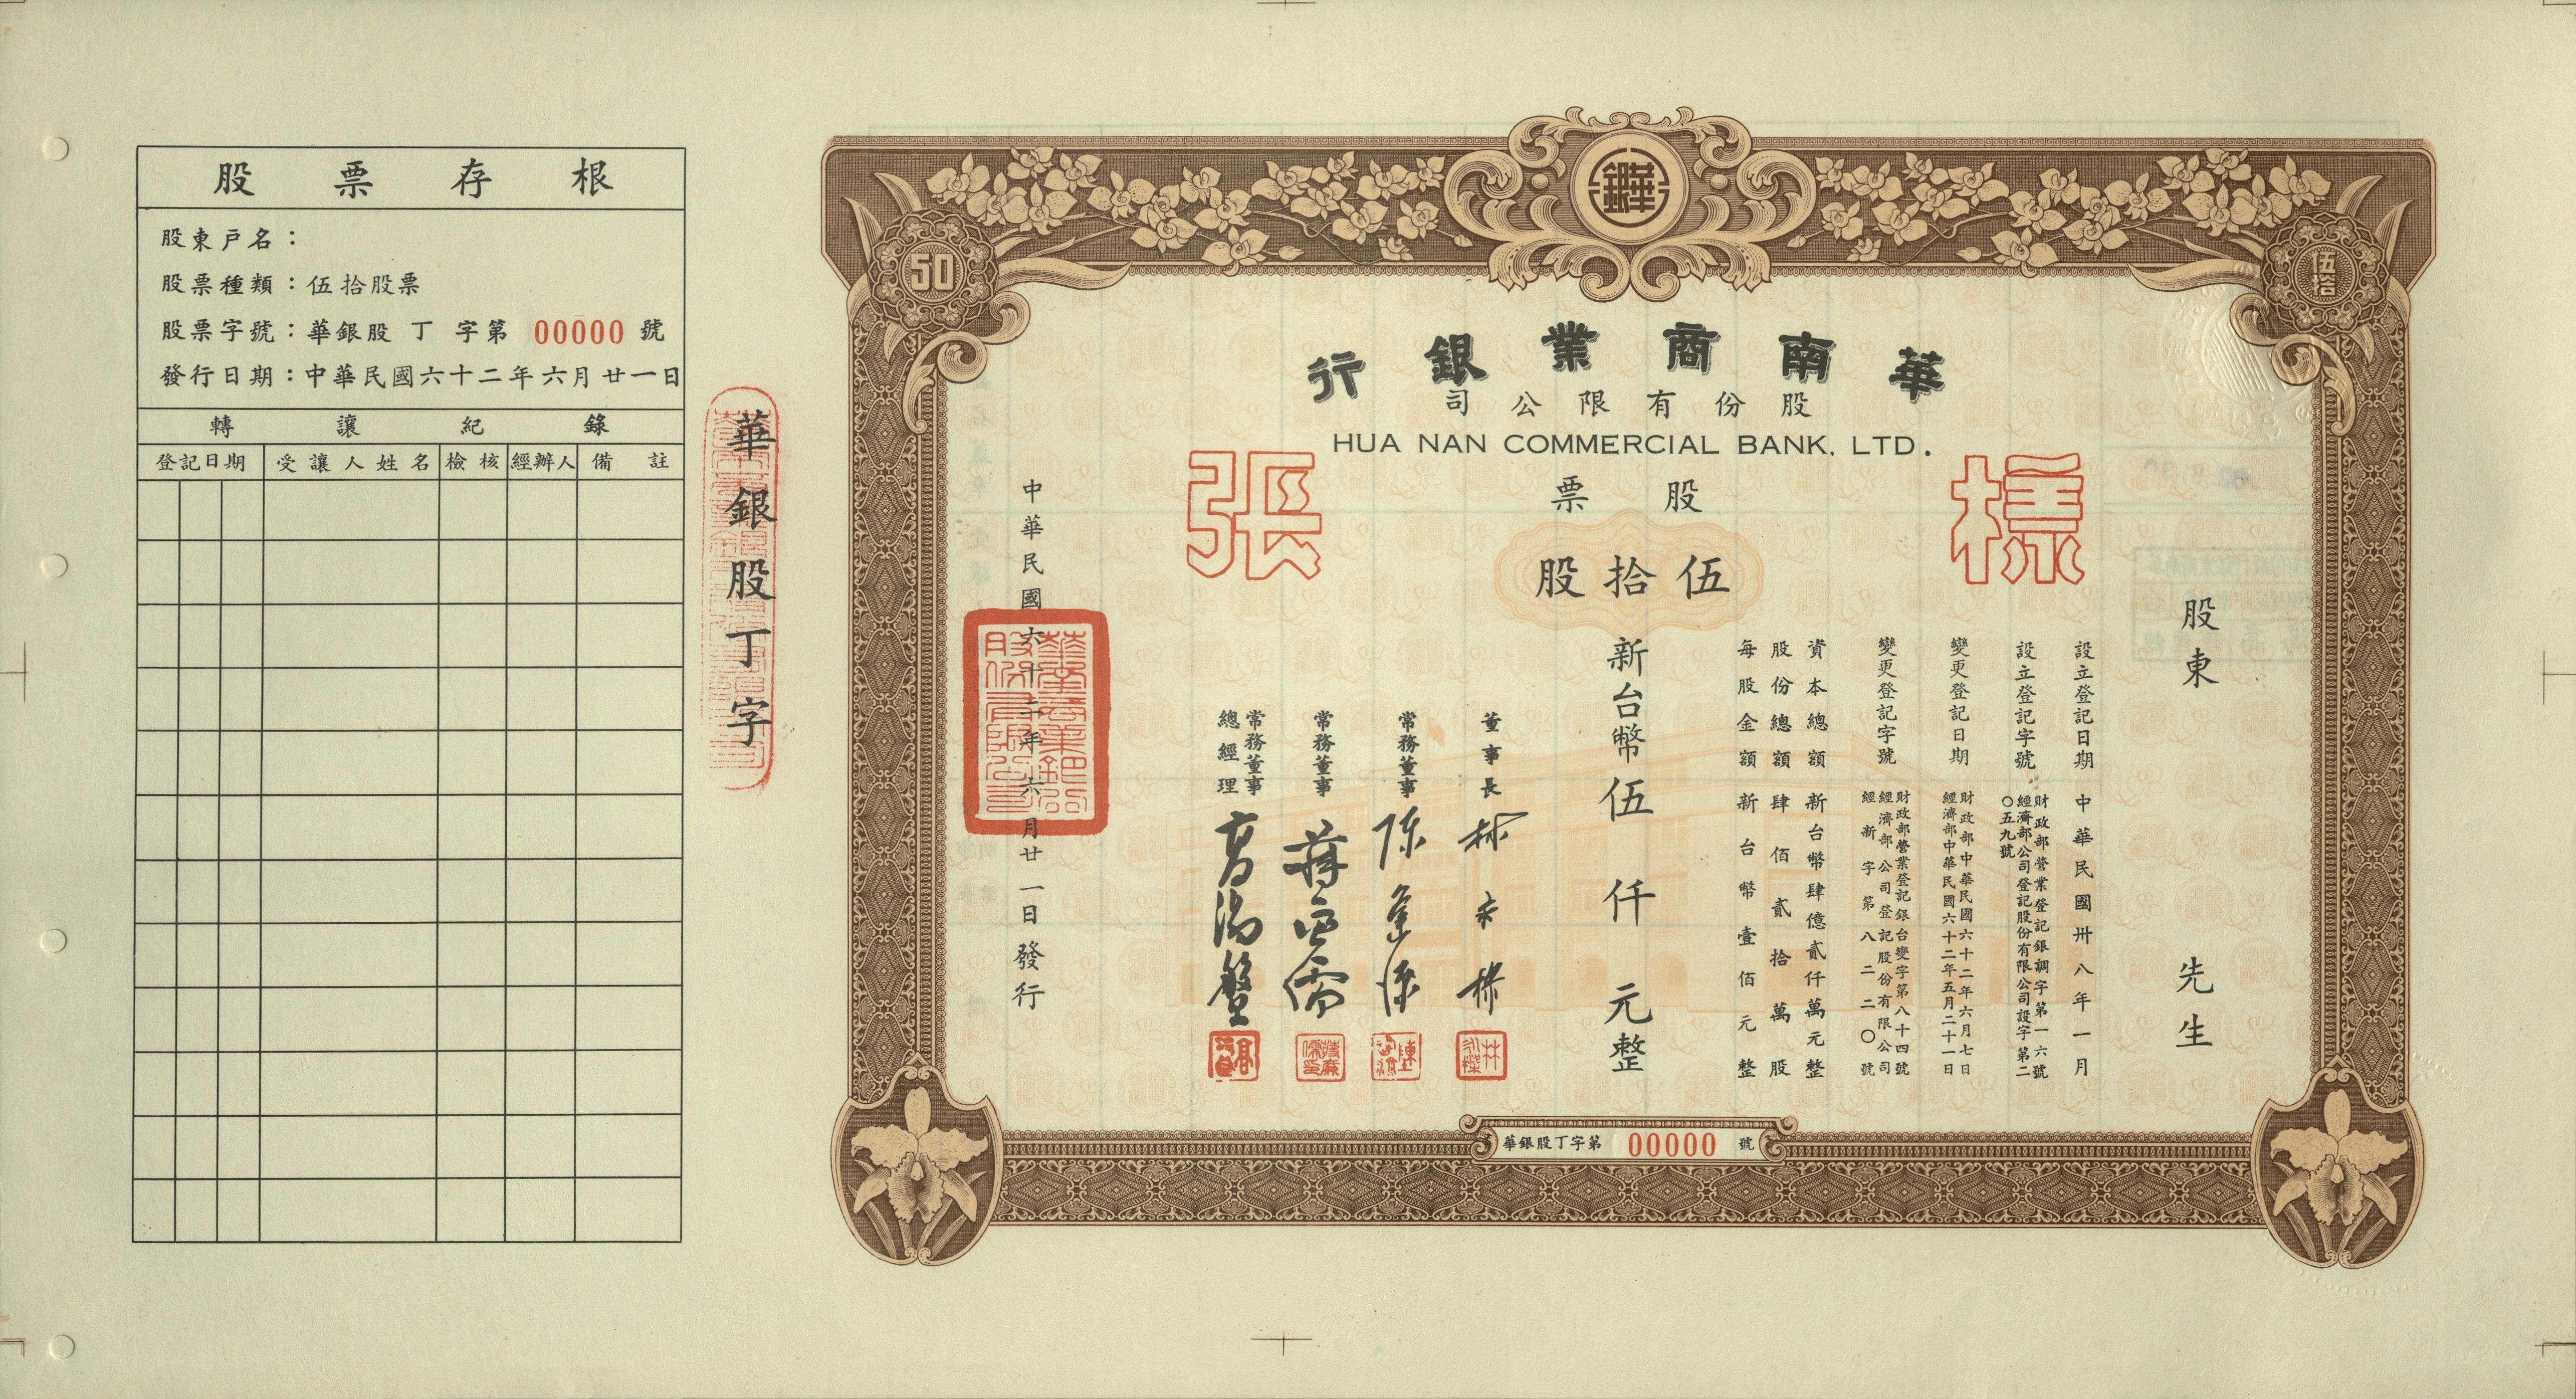 股票存根
股東戶名：
股票種類：伍拾股票
股票字號：華銀股 丁 字第 00000 號
發行日期：中華民國六十二年六月廿一日
轉讓紀錄
登記日期 受讓人姓名 檢核 經辦人 備註
華銀股丁字
50
伍拾
華銀
華南商業銀行
股份有限公司
HUA NAN COMMERCIAL BANK, LTD.
股票
樣張
伍拾股
股東 先生
設立登記日期 中華民國卅八年一月
設立登記字號 財政部營業登記銀調字第一六號
經濟部公司登記股份有限公司設字第二
〇五九號
變更登記日期 財政部中華民國六十二年六月七日
經濟部中華民國六十二年五月二十一日
變更登記字號 財政部營業登記銀台變字第八十四號
經濟部公司登記股份有限公司
經新字第八二二〇號
資本總額 新台幣肆億貳仟萬元整
股份總額 肆佰貳拾萬股
每股金額 新台幣壹佰元整
新台幣伍仟元整
董事長
常務董事
常務董事
常務董事
總經理
中華民國六十二年六月廿一日發行
華銀股丁字第 00000 號